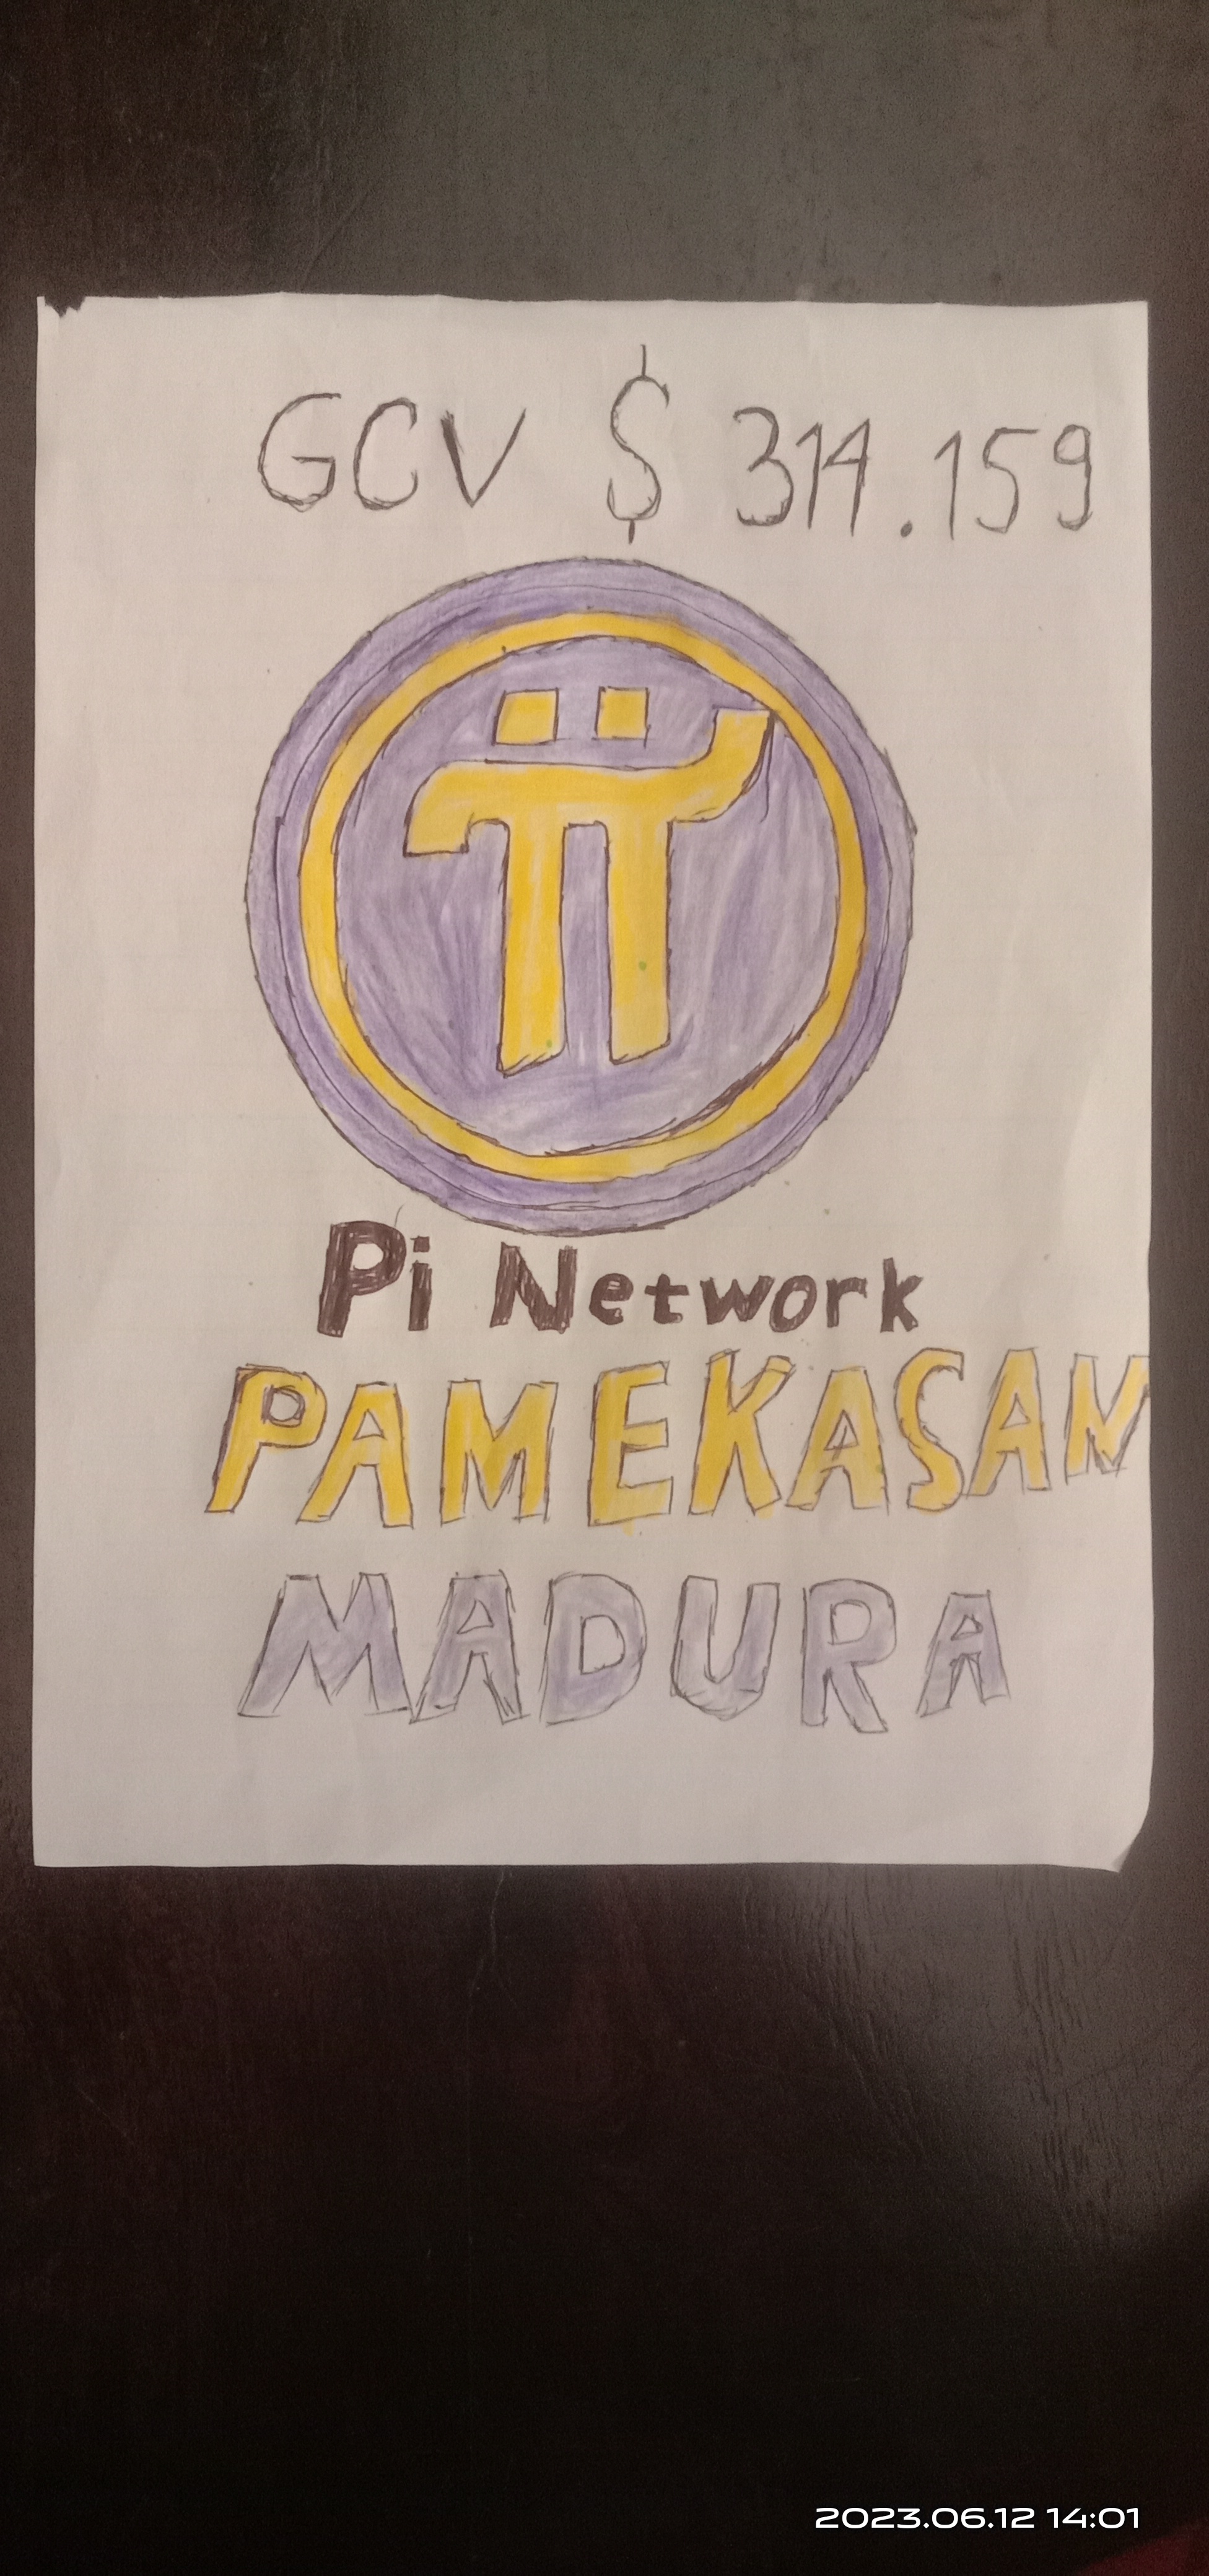 GCV $ 314.159
Pi Network
PAMEKASAN
MADURA
2023.06.12 14:01